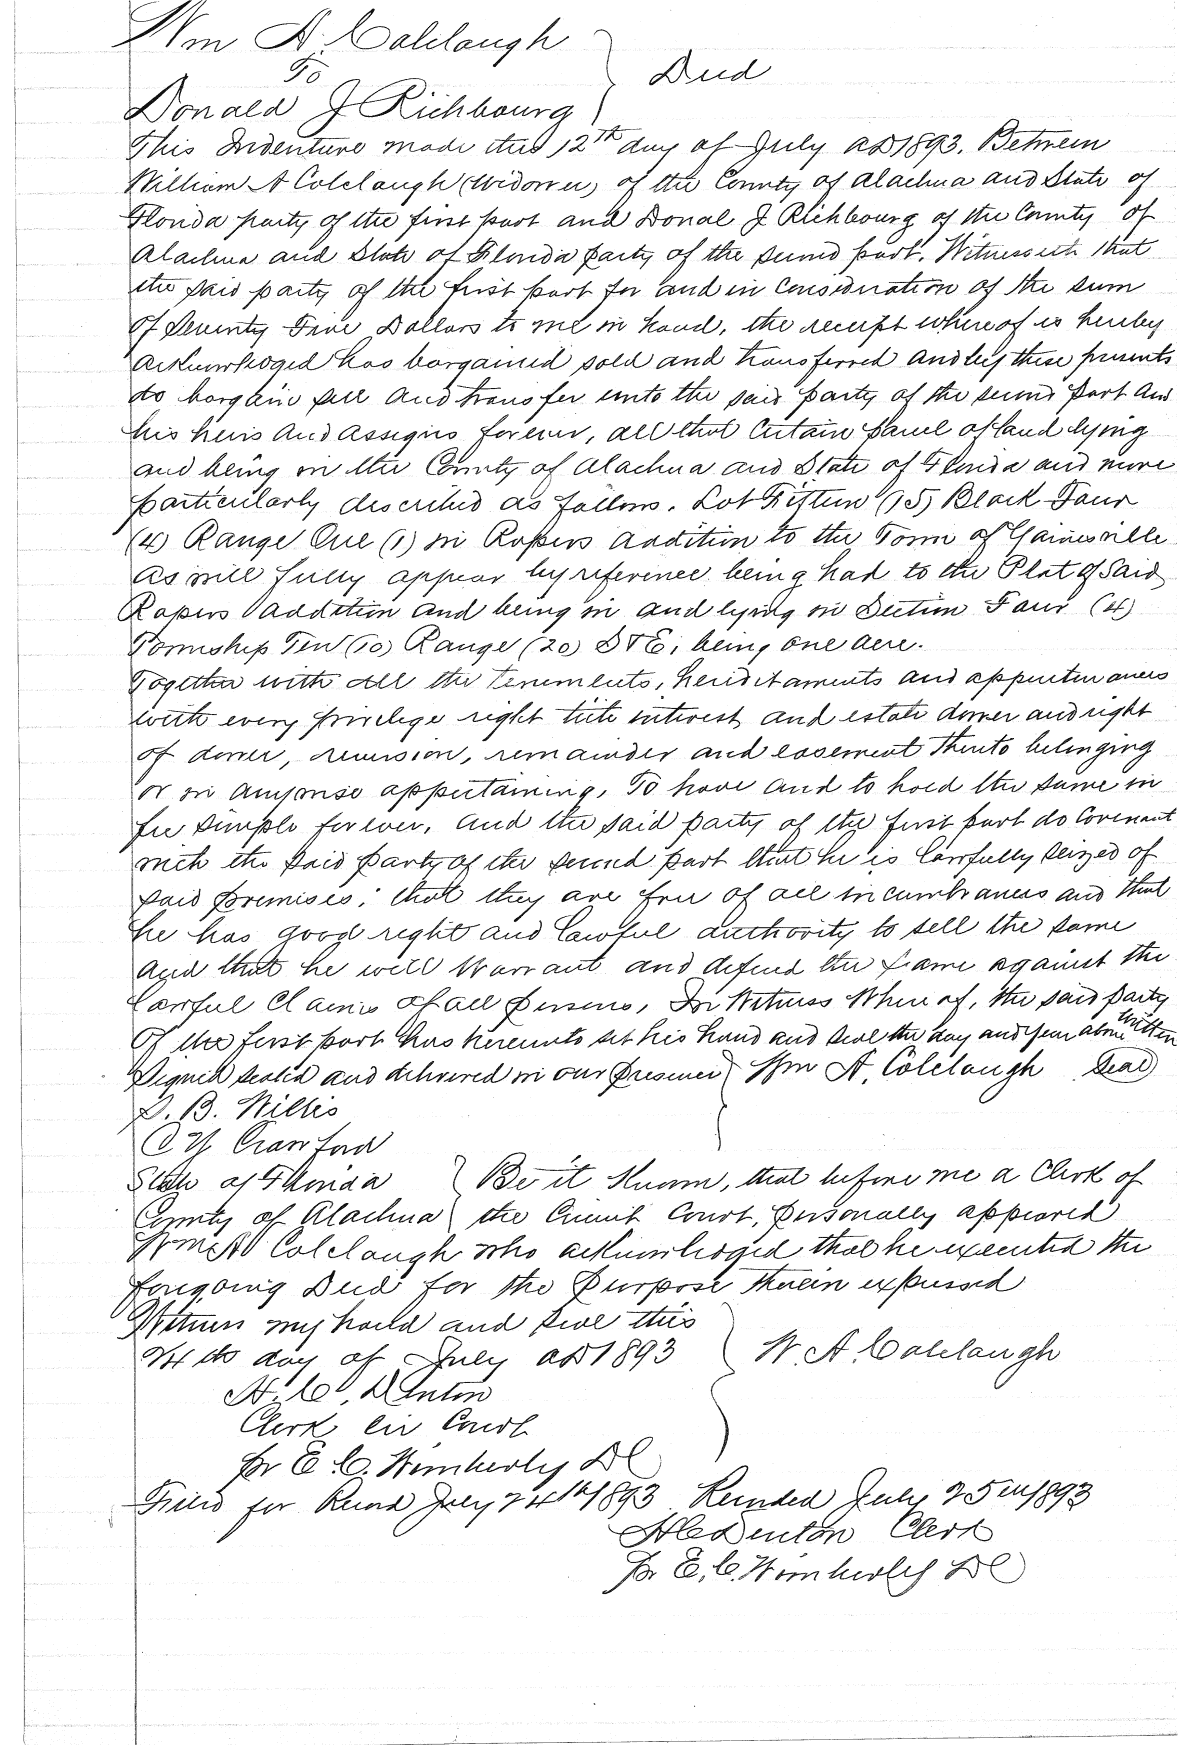 Wm A. Colclough
To
Deed
Donald J Richbourg
This Indenture made this 12th day of July AD 1893. Between
William A Colclough (widower) of the County of Alachua and State of
Florida party of the first part and Donal J Richbourg of the County of
Alachua and State of Florida party of the second part. Witnesseth that
the said party of the first part for and in consideration of the sum
of Seventy Five Dollars to me in hand, the receipt whereof is hereby
acknowledged has bargained sold and transferred and by these presents
do bargain sell and transfer unto the said party of the second part and
his heirs and assigns forever, all that certain parcel of land lying
and being in the County of Alachua and State of Florida and more
particularly described as follows. Lot Fifteen (15) Block Four
(4) Range One (1) in Ropers addition to the Town of Gainesville
as will fully appear by reference being had to the Plat of said
Ropers addition and being in and lying in Section Four (4)
Township Ten (10) Range (20) S & E, being one acre.
Together with all the tenements, hereditaments and appurtenances
with every privilege right title interest and estate dower and right
of dower, reversion, remainder and easement thereto belonging
or in anywise appertaining, To have and to hold the same in
fee simple forever. And the said party of the first part do covenant
with the said party of the second part that he is lawfully seized of
said premises; that they are free of all incumbrances and that
he has good right and lawful authority to sell the same
and that he will warrant and defend the same against the
lawful claims of all persons, In Witness Where of, the said party
of the first part has hereunto set his hand and seal the day and year above written
Signed sealed and delivered in our presence Wm A. Colclough Seal
B. Willis
C Y Crawford
State of Florida Be it Known, that before me a Clerk of
County of Alachua the Circuit Court, personally appeared
Wm A Colclough who acknowledged that he executed the
foregoing Deed for the purpose therein expressed
Witness my hand and seal this
24th day of July AD 1893 W. A. Colclough
H. C. Denton
Clerk Cir Court
pr E. C. Wimberly DC
Filed for Record July 24th 1893 Recorded July 25th 1893
H C Denton Clerk
pr E. C. Wimberly DC